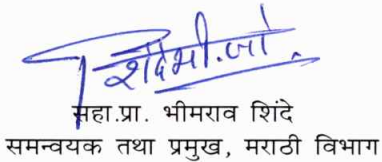 शिंदेभी.जो.
सहा.प्रा. भीमराव शिंदे
समन्वयक तथा प्रमुख, मराठी विभाग